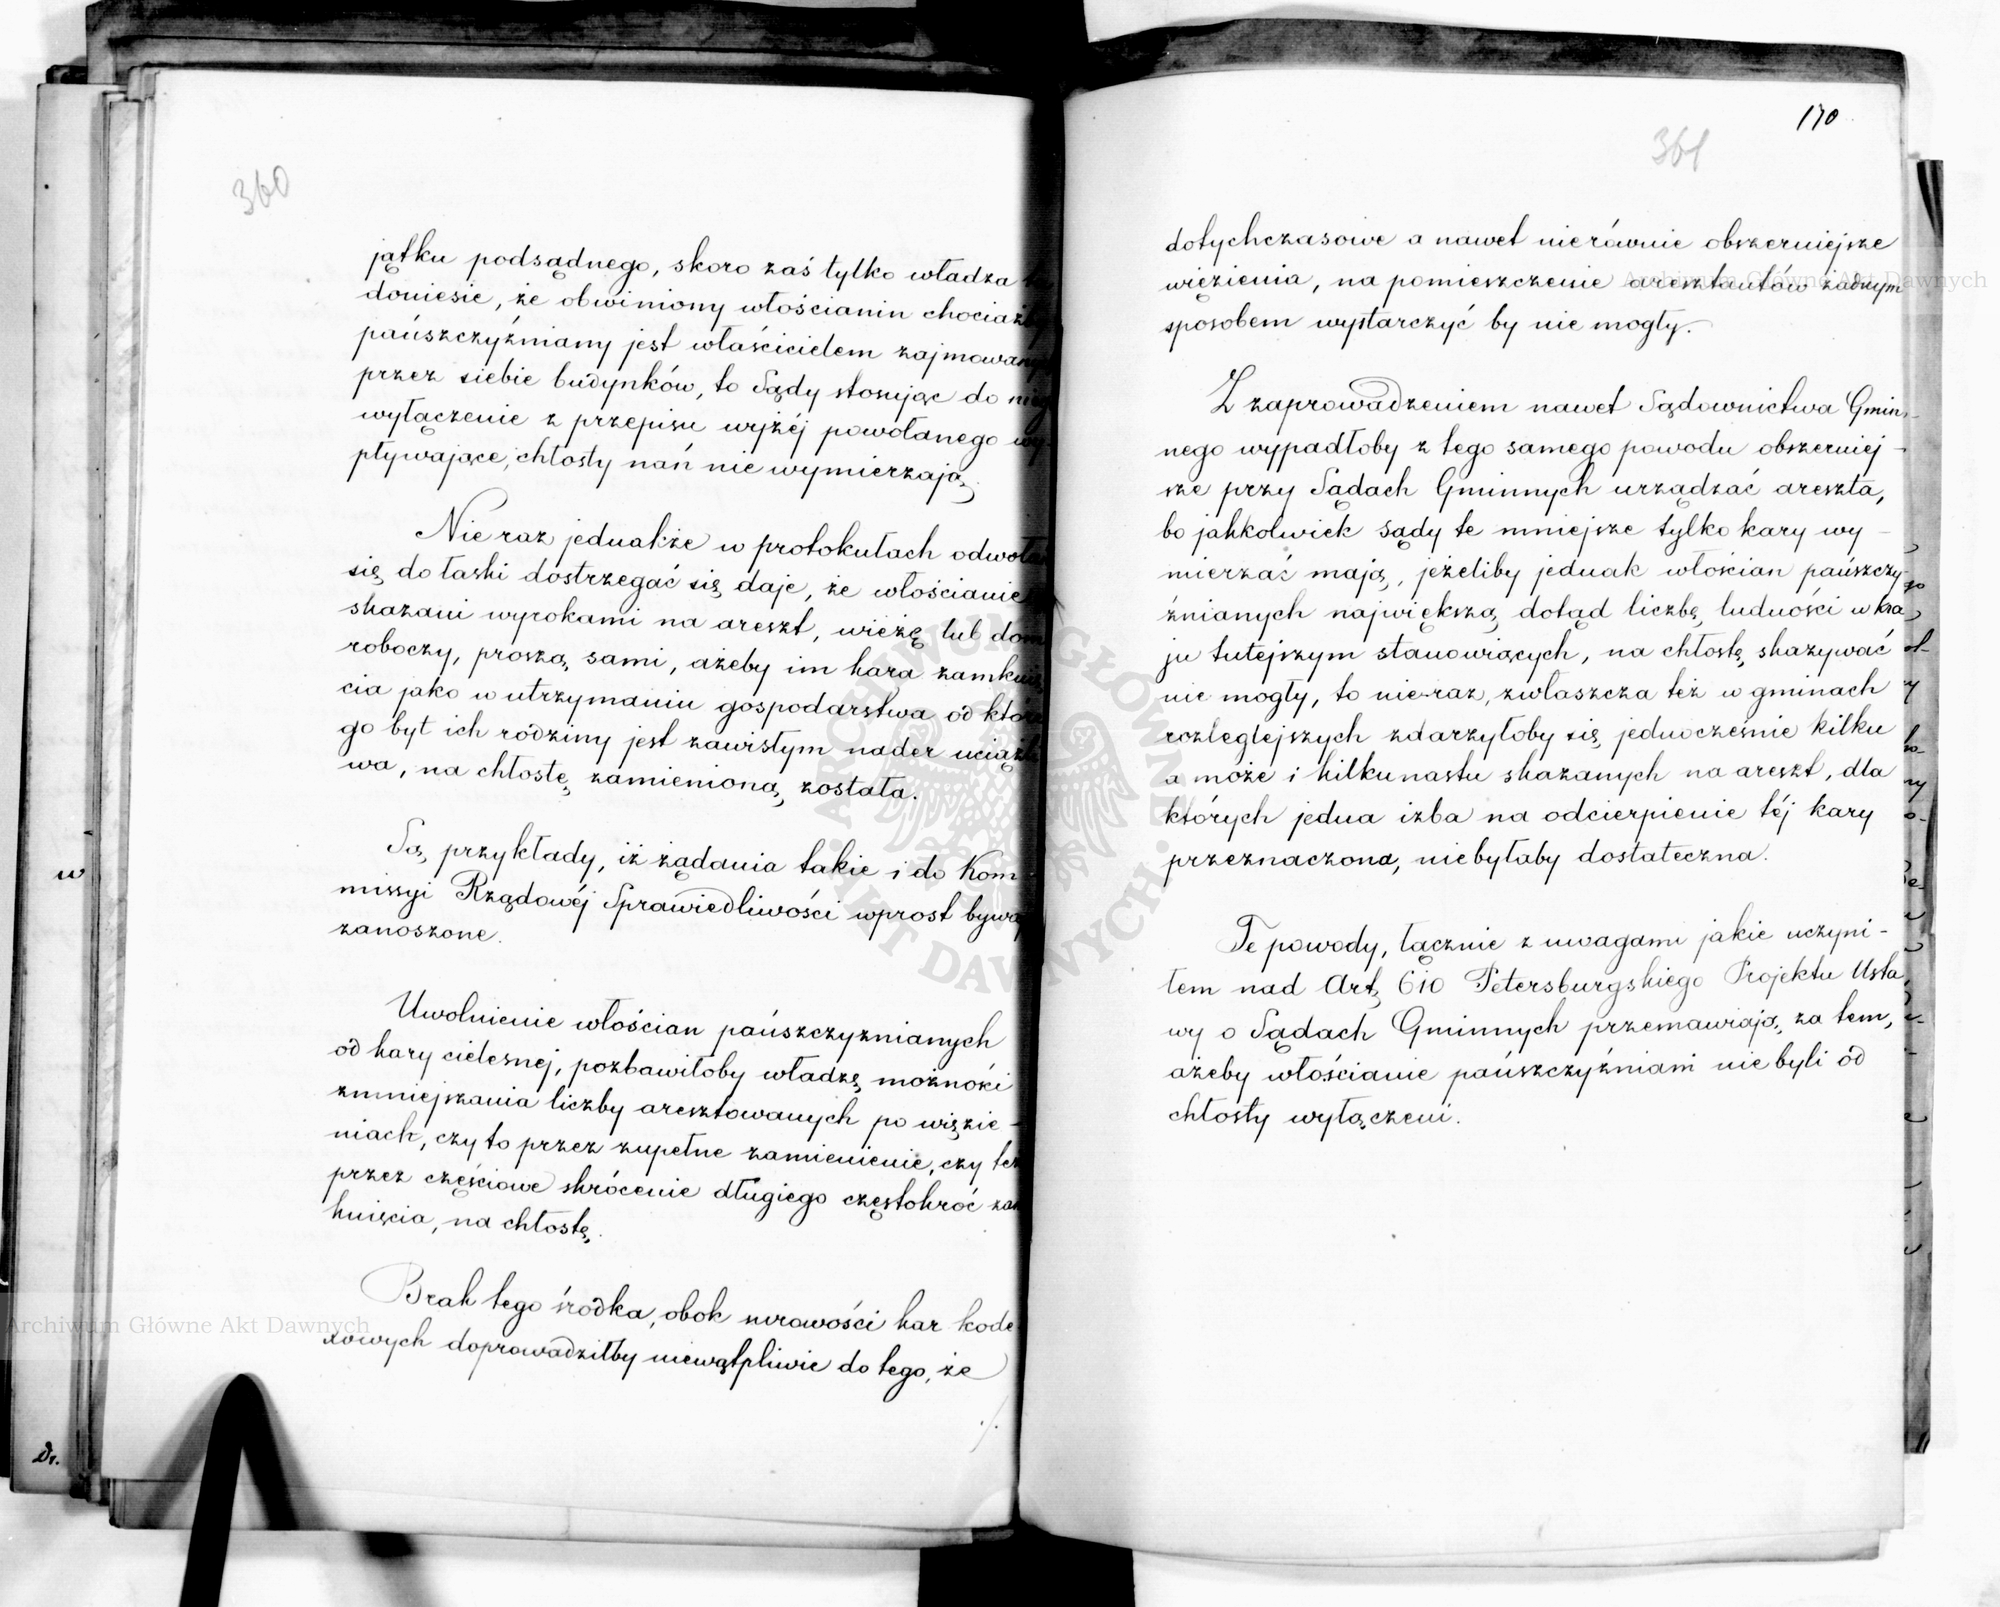 360
jątku podsądnego, skoro zaś tylko władza
doniesie, że obwiniony włościanin chociaż
pańszczyźniany jest właścicielem zajmowan
przez siebie budynków, to Sądy stosując do
wyłączenie z przepisu wyżéj powołanego
pływające, chłosty nań nie wymierzają.
Nie raz jednakże w protokułach odwoła
się do łaski dostrzegać się daje, że włościanie
skazani wyrokami na areszt, wieżę lub dom
roboczy, proszą sami, ażeby im kara zamknię
cia jako w utrzymaniu gospodarstwa od któ
go byt ich rodziny jest zawisłym nader uciążli
wa, na chłostę zamienioną została.
Są przykłady, iż żądania takie i do Kom
missyi Rządowéj Sprawiedliwości wprost bywa
zanoszone.
Uwolnienie włościan pańszczyznianych
od kary cielesnej, pozbawiłoby władzę możności
zmniejszania liczby aresztowanych po więzie -
niach, czy to przez zupełne zamienienie, czy też
przez częściowe skrócenie długiego częstokroć zam
knięcia, na chłostę.
Brak tego środka, obok surowości kar kode-
xowych doprowadziłby niewątpliwie do tego, że
./.
w
Dr.
170
361
dotychczasowe a nawet nierównie obszerniejsze
więzienia, na pomieszczenie aresztantów żadnym
sposobem wystarczyć by nie mogły.
Z zaprowadzeniem nawet Sądownictwa Gmin-
nego wypadłoby z tego samego powodu obszerniej -
sze przy Sądach Gminnych urządzać areszta,
bo jakkolwiek sądy te mniejsze tylko kary wy -
mierzać mają, jeżeliby jednak włościan pańszczy-
źnianych największą dotąd liczbę ludności w kra
ju tutejszym stanowiących, na chłostę skazywać
nie mogły, to nie raz, zwłaszcza też w gminach
rozleglejszych zdarzyłoby się jednocześnie kilku
a może i kilkunastu skazanych na areszt, dla
których jedna izba na odcierpienie téj kary
przeznaczona, niebyłaby dostateczna.
Te powody, łącznie z uwagami jakie uczyni -
łem nad Art. 610 Petersburgskiego Projektu Usta
wy o Sądach Gminnych przemawiają za tem,
ażeby włościanie pańszczyźniani nie byli od
chłosty wyłączeni.
Archiwum Główne Akt Dawnych
Archiwum Główne Akt Dawnych
ARCHIWUM GŁÓWNE · AKT DAWNYCH ·